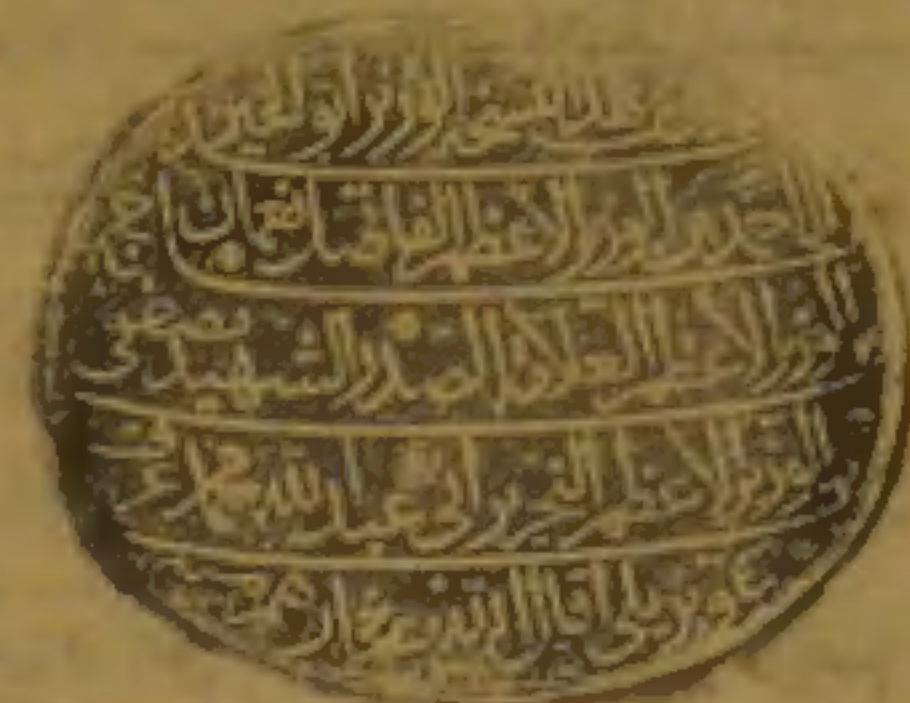 هذه النسخة الوزير ابو
احمد بن الوزير الاعظم الفاضل نعمان
الوزير الاعظم العلامة الصدر الشهيد مصطفى
الوزير الاعظم ابي عبد الله محمد عرف
بكوبريلي اقال الله عثارهم